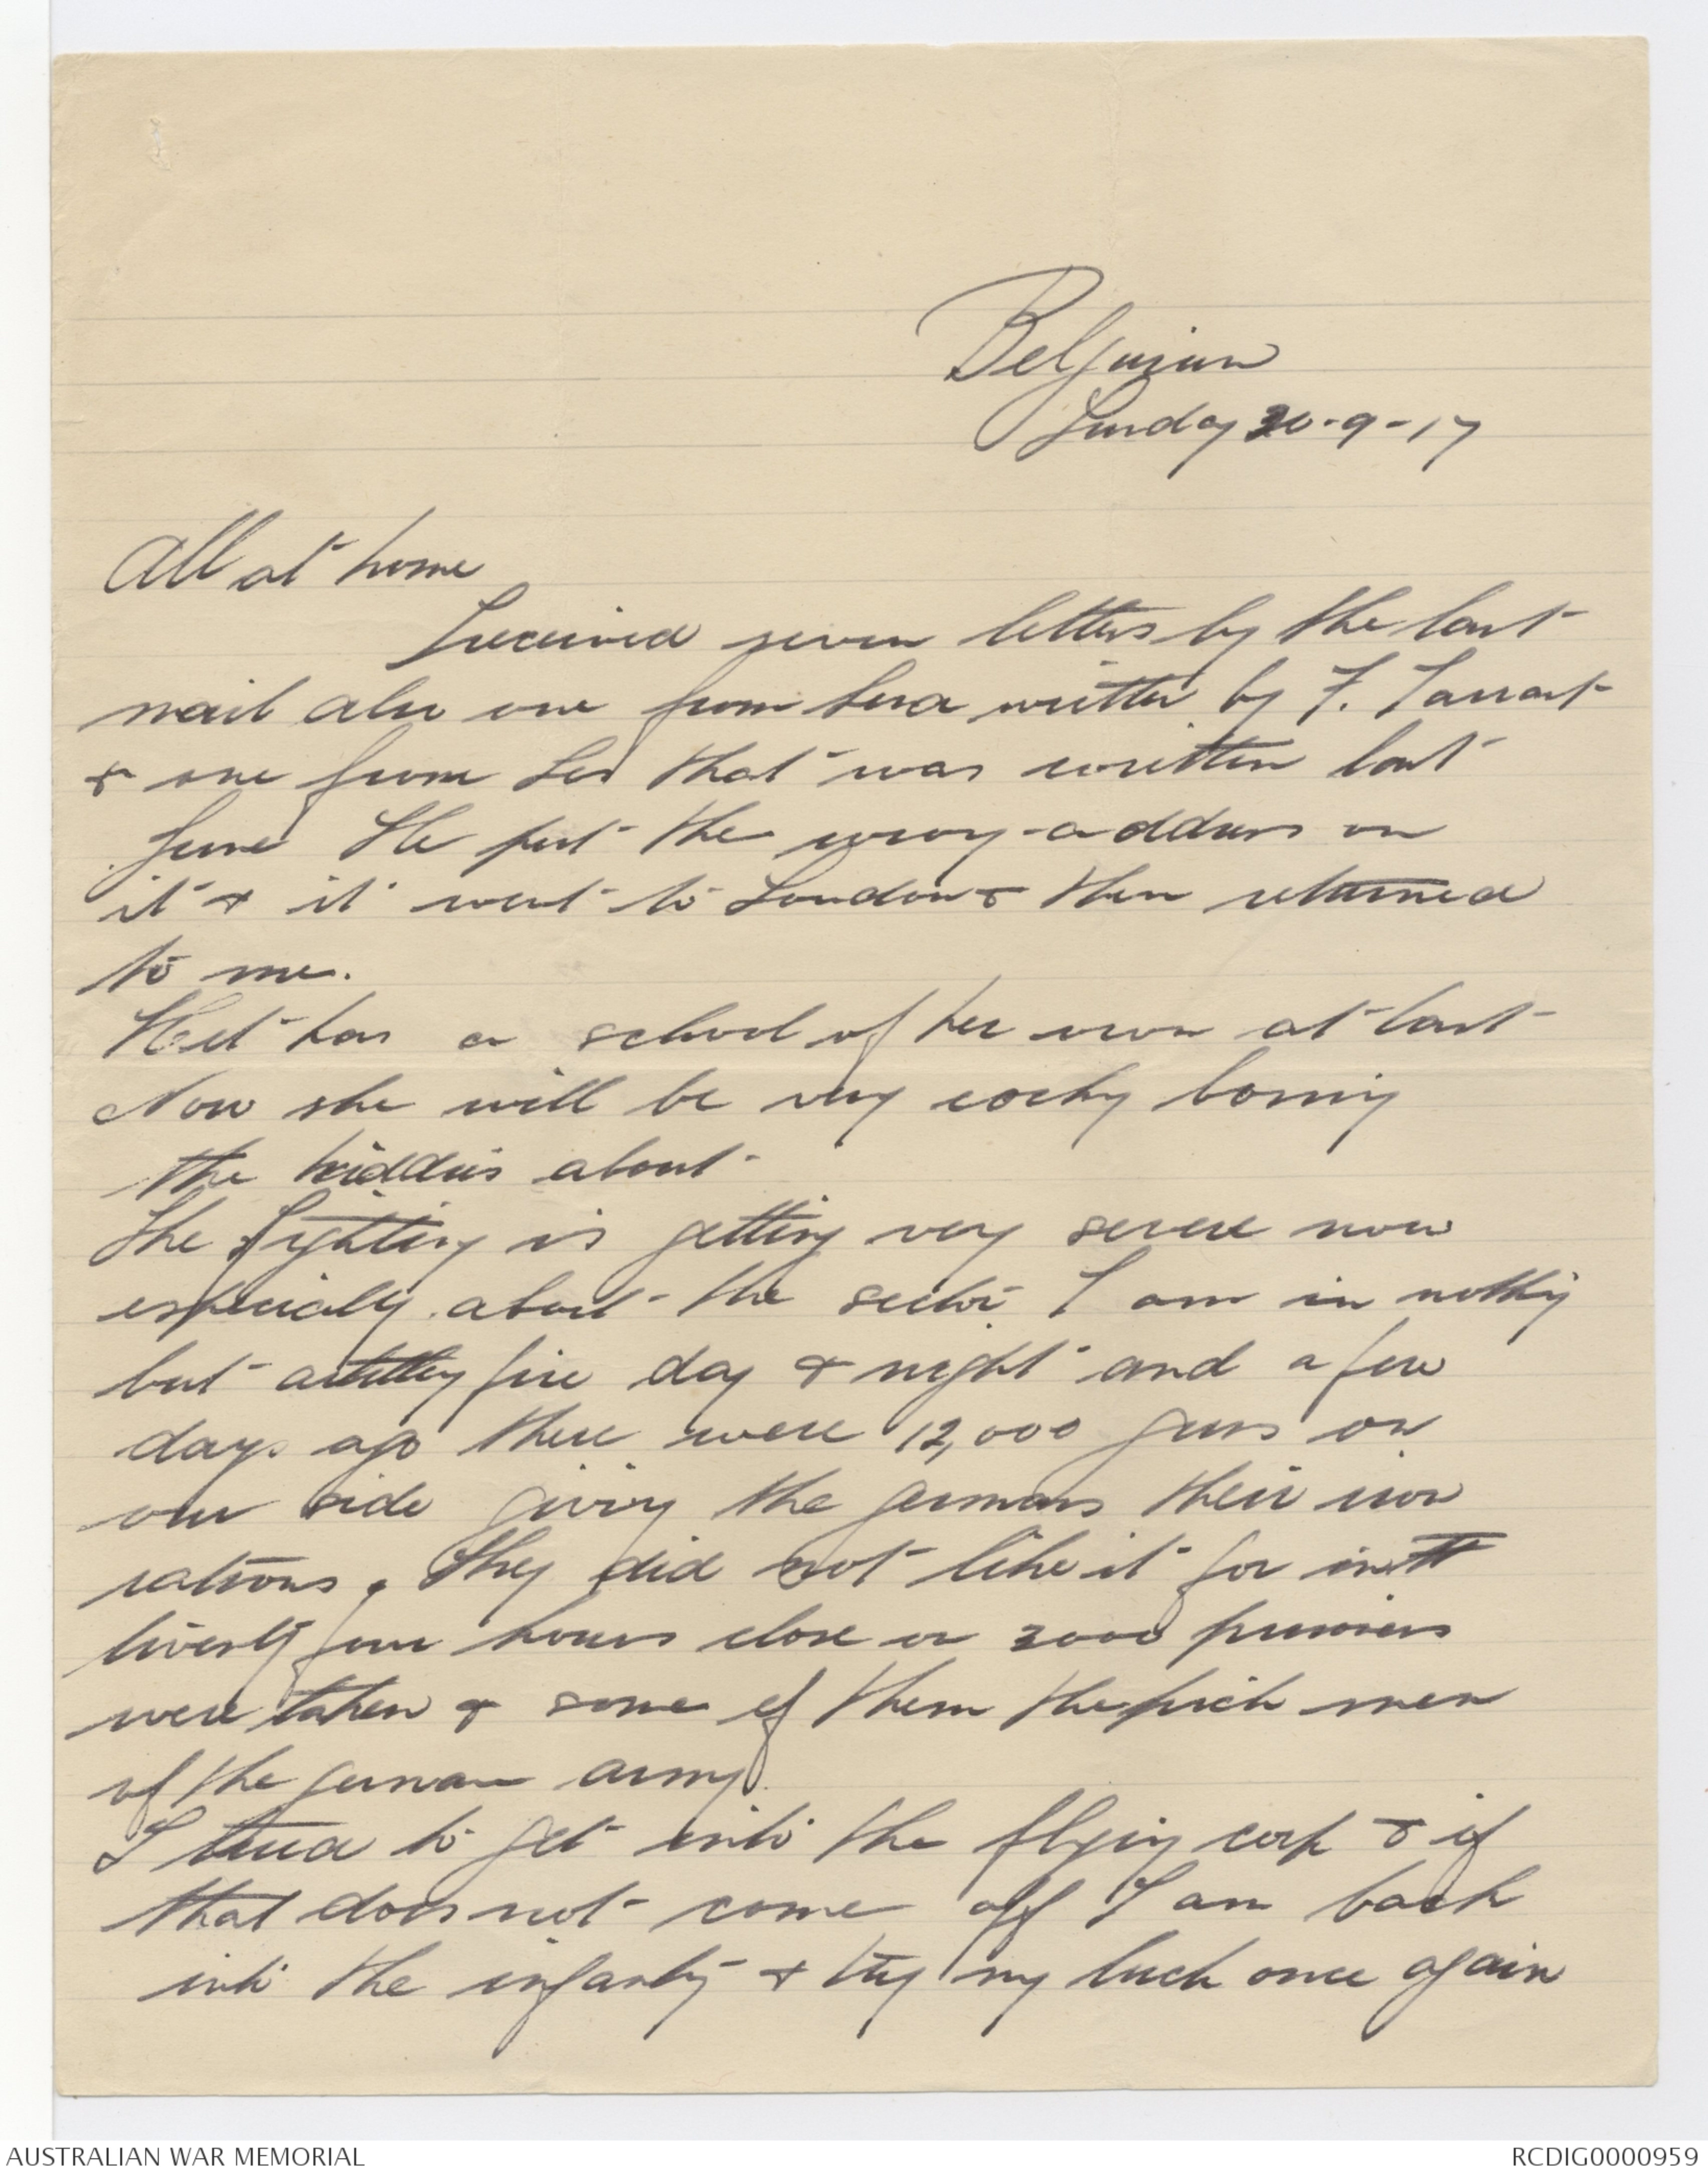 Belguium
Sunday 30-9-17
All at home
I received seven letters by the last
mail also one from written by F. Tarrant
& one from Les that was written last
June He put the wrong address on
it & it went to London & then returned
to me.
Het has a school of her own at last
Now she will be very cocky bossing
the kiddies about
The fighting is getting very severe now
especially about the sector I am in nothing
but artillery fire day & night and a few
days ago there were 12,000 guns on
our side giving the germans their iron
rations. They did not like it for in
twenty four hours close on 3000 prisoners
were taken & some of them the pick men
of the german army.
I tried to get into the flying corp & if
that does not come off I am back
into the infantry & try my luck once again
AUSTRALIAN WAR MEMORIAL
RCDIG0000959